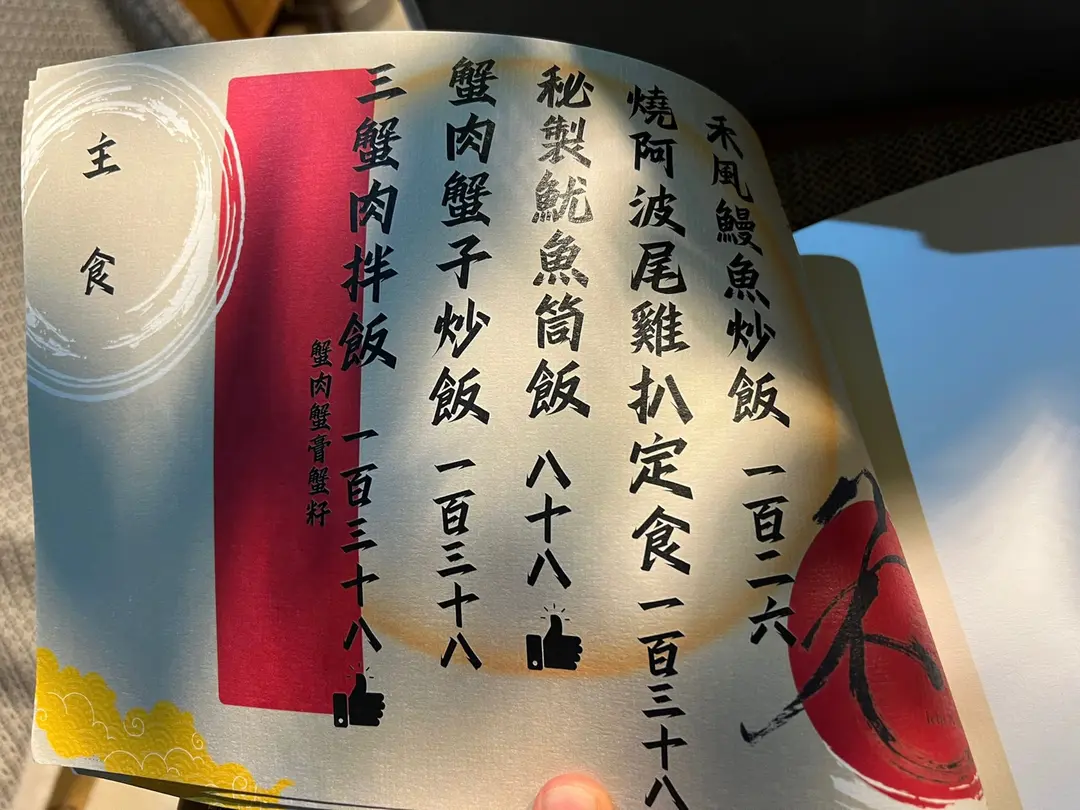 主食
三蟹肉拌飯 一百三十八
蟹肉蟹膏蟹籽
蟹肉蟹子炒飯 一百三十八
秘製魷魚筒飯 八十八
燒阿波尾雞扒定食 一百三十八
禾風鰻魚炒飯 一百二六